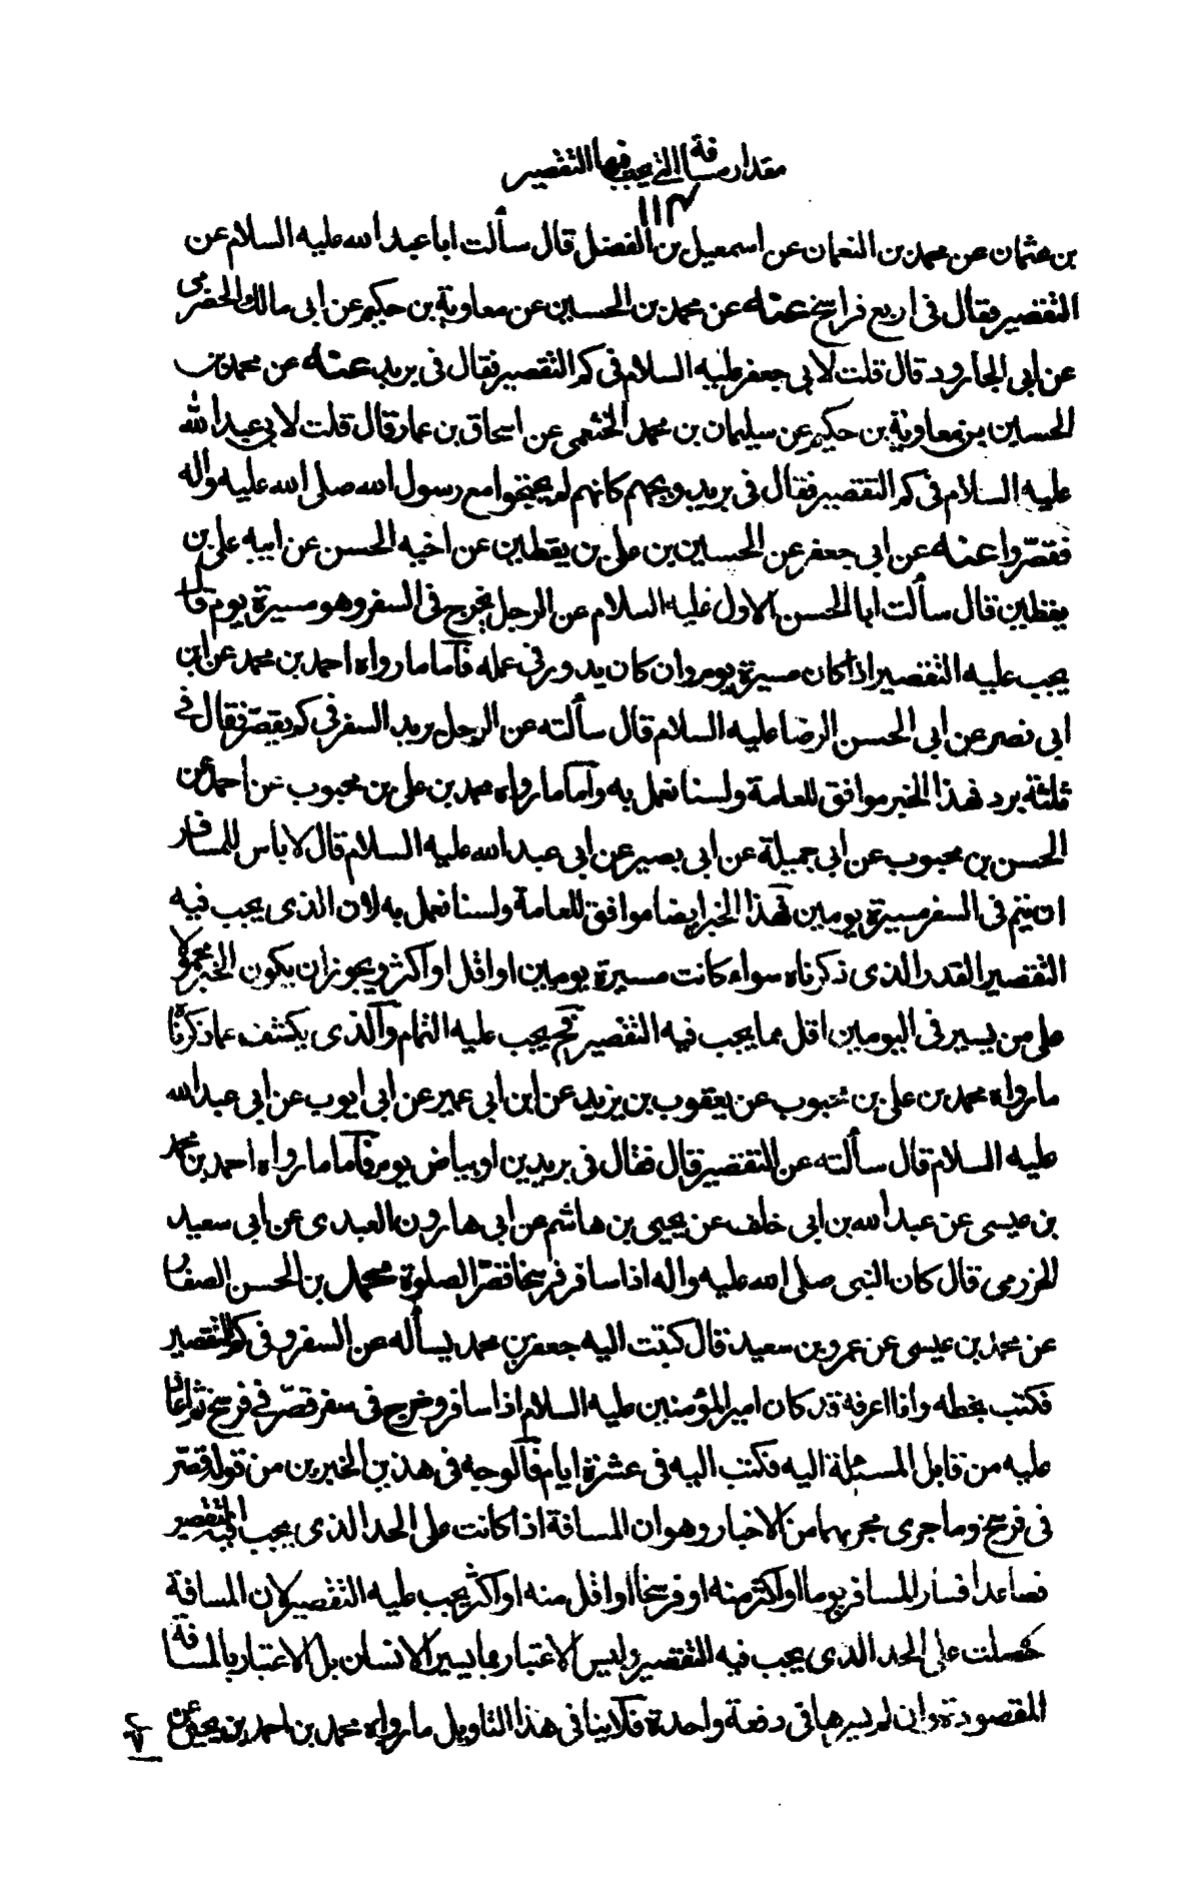 مقدار مسافة التي يجب فيها التقصير
١١٣
بن عثمان عن محمد بن النعمان عن اسمعيل بن الفضل قال سألت ابا عبد الله عليه السلام عن
التقصير فقال في اربع فراسخ عنه عن محمد بن الحسين عن معاوية بن حكيم عن ابي مالك الحضرمي
عن ابي الجارود قال قلت لابي جعفر عليه السلام في كم التقصير فقال في بريد عنه عن محمد بن
الحسين عن معاوية بن حكيم عن سليمان بن محمد الخثعمي عن اسحاق بن عمار قال قلت لابي عبد الله
عليه السلام في كم التقصير فقال في بريد ويحهم كانهم لم يحجوا مع رسول الله صلى الله عليه واله
فقصّروا عنه عن ابي جعفر عن الحسين بن علي بن يقطين عن اخيه الحسن عن ابيه علي بن
يقطين قال سألت ابا الحسن الاول عليه السلام عن الرجل يخرج في السفر وهو مسيرة يوم قال
يجب عليه التقصير اذا كان مسيرة يوم وان كان يدور في عمله فآما ما رواه احمد بن محمد عن ابن
ابي نصر عن ابي الحسن الرضا عليه السلام قال سألته عن الرجل يريد السفر في كم يقصّر فقال في
ثلثة برد فهذا الخبر موافق للعامة ولسنا نعمل به وآما ما رواه محمد بن علي بن محبوب عن احمد عن
الحسن بن محبوب عن ابي جميلة عن ابي بصير عن ابي عبد الله عليه السلام قال لا بأس للمسافر
ان يتم في السفر مسيرة يومين فهذا الخبر ايضا موافق للعامة ولسنا نعمل به لان الذي يجب فيه
التقصير القدر الذي ذكرناه سواء كانت مسيرة يومين او اقل او اكثر ويجوز ان يكون الخبر محمولا
على من يسير في اليومين اقل مما يجب فيه التقصير فح يجب عليه التمام وآلذي يكشف عما ذكرناه
ما رواه محمد بن علي بن محبوب عن يعقوب بن يزيد عن ابن ابي عمير عن ابي ايوب عن ابي عبد الله
عليه السلام قال سألته عن التقصير قال فقال في بريدين او بياض يوم فآما ما رواه احمد بن محمد
بن عيسى عن عبد الله بن ابي خلف عن يحيى بن هاشم عن ابي هارون العبدي عن ابي سعيد
الخزرمي قال كان النبي صلى الله عليه واله اذا سافر فرسخا قصّر الصلوة محمد بن الحسن الصفار
عن محمد بن عيسى عن عمرو بن سعيد قال كتبت اليه جعفر بن محمد يسأله عن السفر وفي كم التقصير
فكتب بخطه وانا اعرفه قد كان امير المؤمنين عليه السلام اذا سافر وخرج في سفر قصّر في فرسخ ثم اعاد
عليه من قابل المسئلة اليه فكتب اليه في عشرة ايام فآلوجه في هذين الخبرين من قوله قصّر
في فرسخ وما جرى مجريهما من الاخبار وهو ان المسافة اذا كانت على الحد الذي يجب فيه التقصير
فصاعدا فسار المسافر يوما او اكثر منه او فرسخا او اقل منه او اكثر يجب عليه التقصير لان المسافة
حصلت على الحد الذي يجب فيه التقصير وليس الاعتبار بما يسير الانسان بل الاعتبار بالمسافة
المقصودة وان لم يسرها في دفعة واحدة فلا ينافي هذا التاويل ما رواه محمد بن احمد بن يحيى عن